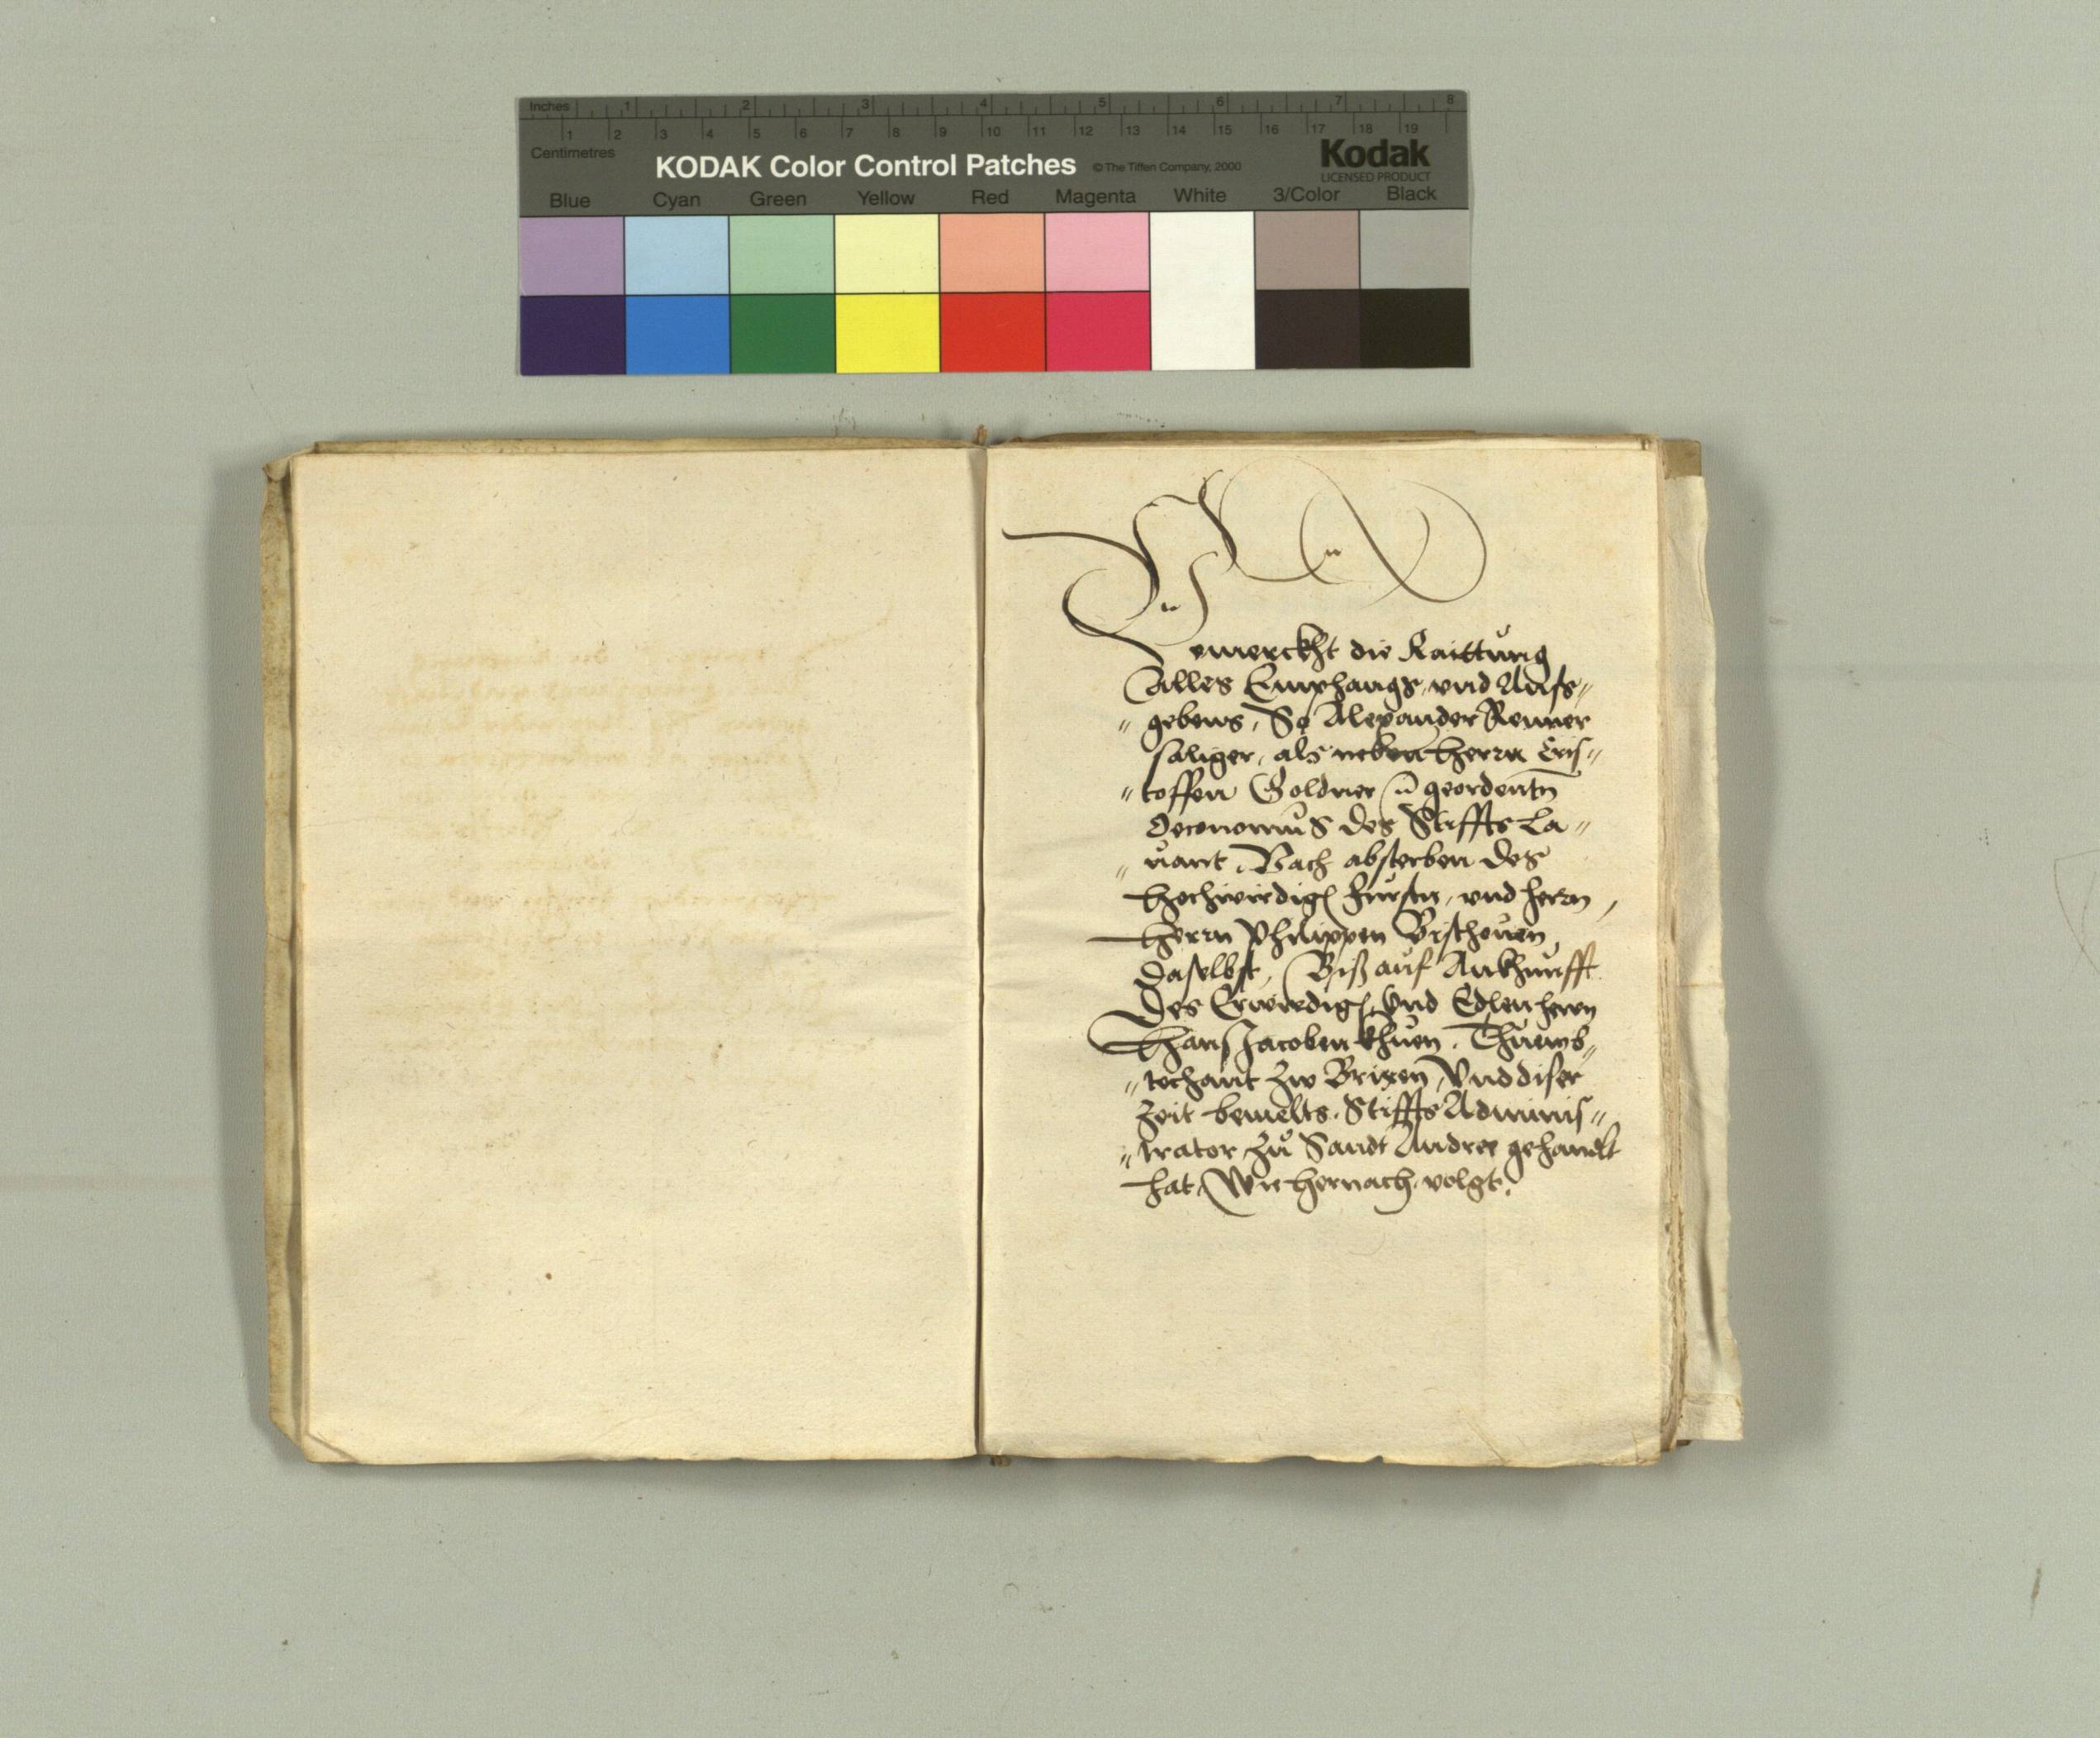 Inches 1 2 3 4 5 6 7 8
1 2 3 4 5 6 7 8 9 10 11 12 13 14 15 16 17 18 19
Centimetres
KODAK Color Control Patches © The Tiffen Company, 2000 Kodak
LICENSED PRODUCT
Blue Cyan Green Yellow Red Magenta White 3/Color Black
Vermerckht die Raittung
alles Emphangs, vnd Auss„
„gebens, So Alexander Renner
saliger, als neben herrn Cris„
„toffen Goldner geordentn
Oeconomus des Stiffts La„
„uant, Nach absterben des
hochwirdig fursten, vnd herrn,
herrn Philippen Bischouen
daselbst, Biß auf Ankhunfft
des Erwirdig, Vnd Edlen herrn
Hans Jacoben Khuen, Thuemb„
„techant zw Brixen, Vnd diser
zeit bemelts Stiffts Adminis„
„trator zu Sandt Andree gehandlt
hat, Wie hernach volgt.